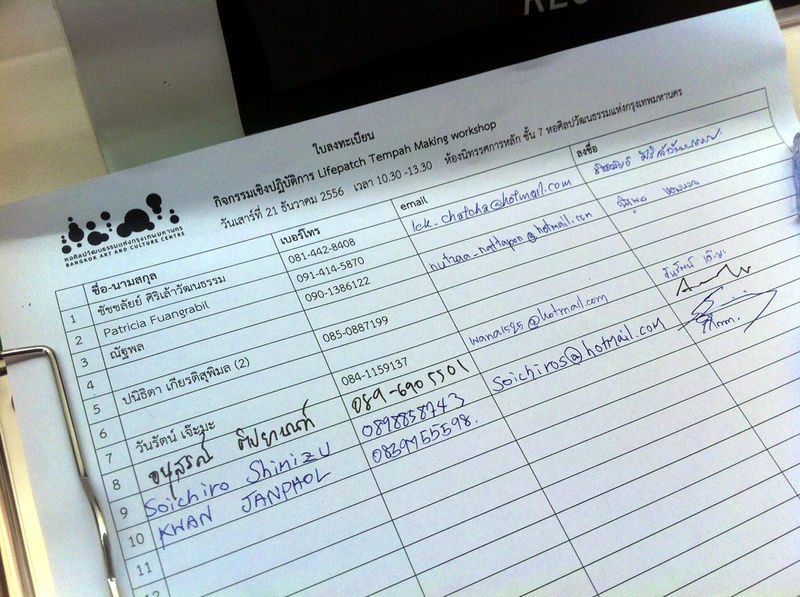 ใบลงทะเบียน
กิจกรรมเชิงปฏิบัติการ Lifepatch Tempah Making workshop
วันเสาร์ที่ 21 ธันวาคม 2556 เวลา 10.30 -13.30 ห้องนิทรรศการหลัก ชั้น 7 หอศิลปวัฒนธรรมแห่งกรุงเทพมหานคร
หอศิลปวัฒนธรรมแห่งกรุงเทพมหานคร
BANGKOK ART AND CULTURE CENTRE
ชื่อ-นามสกุล เบอร์โทร email ลงชื่อ
1 ชัชชลัยย์ ศิริเล้าวัฒนธรรม 081-442-8408 lck_chatcha@hotmail.com
2 Patricia Fuangrabil 091-414-5870
3 ณัฐพล 090-1386122 nutzaa_nattapon@hotmail.com
4
5 ปนิธิตา เกียรติสุพิมล (2) 085-0887199
6
7 วันรัตน์ เจ๊ะมะ 084-1159137 wana1525@hotmail.com วันรัตน์ เจ๊ะมะ
8 อนุสรณ์ ติปยานนท์ 089-6905501
9 Soichiro Shimizu 0898858743 soichiros@hotmail.com
10 KWAN JANPAOL 0839955598.
11
12